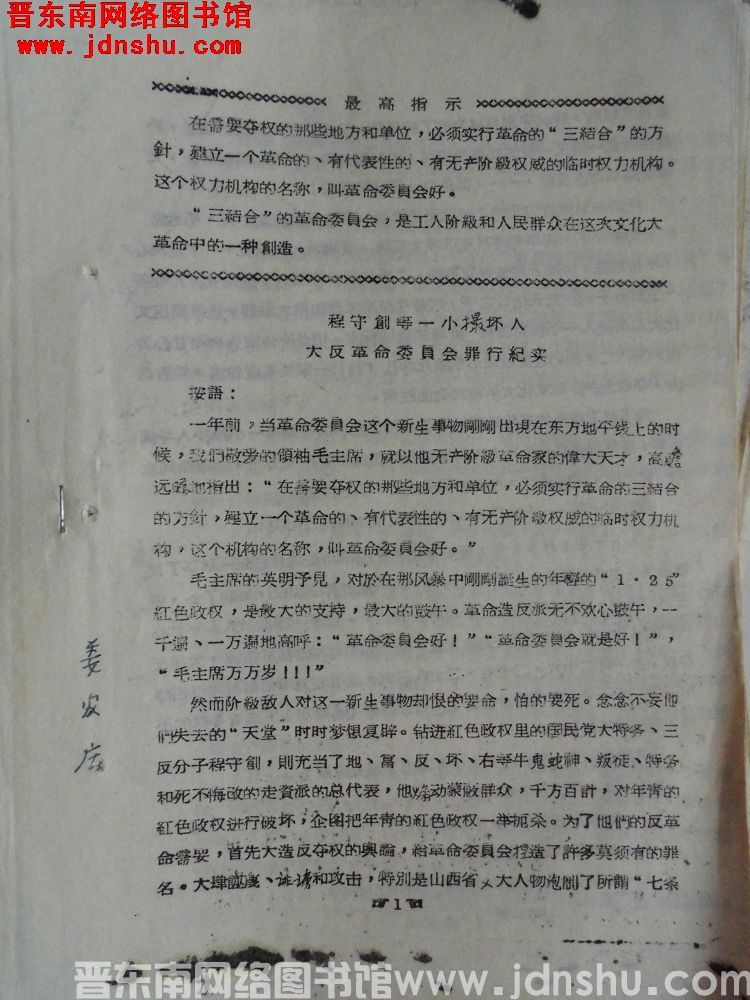 晋东南网络图书馆
www.jdnshu.com
最高指示
在需要夺权的那些地方和单位，必须实行革命的“三結合”的方
針，建立一个革命的、有代表性的、有无产阶級权威的临时权力机构。
这个权力机构的名称，叫革命委員会好。
“三結合”的革命委員会，是工人阶級和人民群众在这次文化大
革命中的一种創造。
程守創等一小撮坏人
大反革命委員会罪行紀实
按語：
一年前，当革命委員会这个新生事物剛剛出現在东方地平线上的时
候，我們敬爱的領袖毛主席，就以他无产阶級革命家的偉大天才，高瞻
远瞩地指出：“在需要夺权的那些地方和单位，必须实行革命的三結合
的方針，建立一个革命的、有代表性的、有无产阶級权威的临时权力机
构，这个机构的名称，叫革命委員会好。”
毛主席的英明予見，对於在那风暴中剛剛誕生的年輕的“1·25”
紅色政权，是最大的支持，最大的鼓午。革命造反派无不欢心鼓午，一
千遍、一万遍地高呼：“革命委員会好！”“革命委員会就是好！”，
“毛主席万万岁！！！”
然而阶級敌人对这一新生事物却恨的要命，怕的要死。念念不妄他
們失去的“天堂”时时梦想复辟。钻进紅色政权里的国民党大特务、三
反分子程守創，則充当了地、富、反、坏、右等牛鬼蛇神、叛徒、特务
和死不悔改的走資派的总代表，他煽动蒙蔽群众，千方百計，对年青的
紅色政权进行破坏，企图把年青的紅色政权一举扼杀。为了他們的反革
命需要，首先大造反夺权的輿論，給革命委員会捏造了許多莫须有的罪
名。大肆 誹謗和攻击，特別是山西省 大人物泡制了所謂“七条
1
姜发庆
晋东南网络图书馆www.jdnshu.com